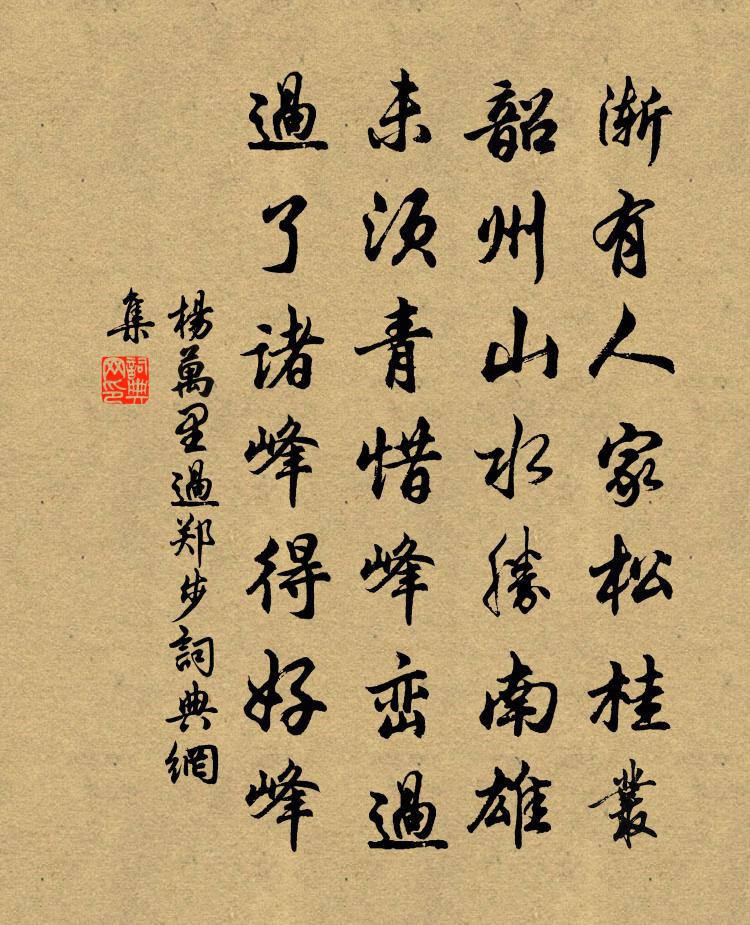 渐有人家松桂叢
韶州山水勝南雄
未須青惜峰峦過
過了诸峰得好峰
楊萬里過郑步詞典網
集
詞典网印